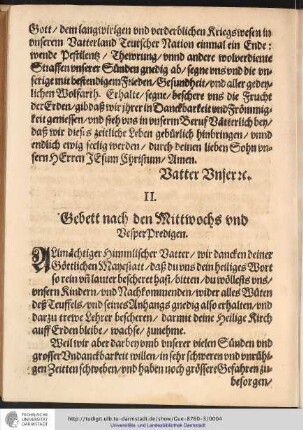 Gott / dem langwirigen vnd verderblichen Kriegswesen in
vnserem Vatterland Teutscher Nation einmal ein Ende:
wende Pestilentz / Thewrung / vnnd andere wolverdiente
Straffen vnserer Sünden gnedig ab / segne vns vnd die vn-
serige mit bestendigem Frieden / Gesundheit / vnd aller gedey-
lichen Wolfarth. Erhalte / segne / beschere vns die Frucht
der Erden / gib daß wir jhrer in Danckbarkeit vnd Frömmig-
keit geniessen / vnd steh vns in vnserm Beruf Vätterlich bey /
daß wir dieses zeitliche Leben gebürlich hinbringen / vnnd
endlich ewig seelig werden / durch deinen lieben Sohn vn-
sern HErren JEsum Christum / Amen.
Vatter Vnser ꝛc.
II.
Gebett nach den Mittwochs vnd
Vesper Predigen.
ALmächtiger Himmlischer Vatter / wir dancken deiner
Göttlichen Mayestatt / daß du vns dein heiliges Wort
so rein vñ lauter bescheret hast / bitten / du wöllests vns /
vnsern Kindern / vnd Nachkommenden / wider alles Wüten
deß Teuffels / vnd seines Anhangs gnedig also erhalten / vnd
darzu trewe Lehrer bescheren / darmit deine Heilige Kirch
auff Erden bleibe / wachse / zunehme.
Weil wir aber darbey vmb vnserer vielen Sünden vnd
grosser Vndanckbarkeit willen / in sehr schweren vnd vnrühi-
gen Zeitten schweben / vnd haben noch grössere Gefahren zu
besorgen /
TECHNISCHE
UNIVERSITÄT
DARMSTADT
http://tudigit.ulb.tu-darmstadt.de/show/Gue-8760-3/0004
Universitäts- und Landesbibliothek Darmstadt